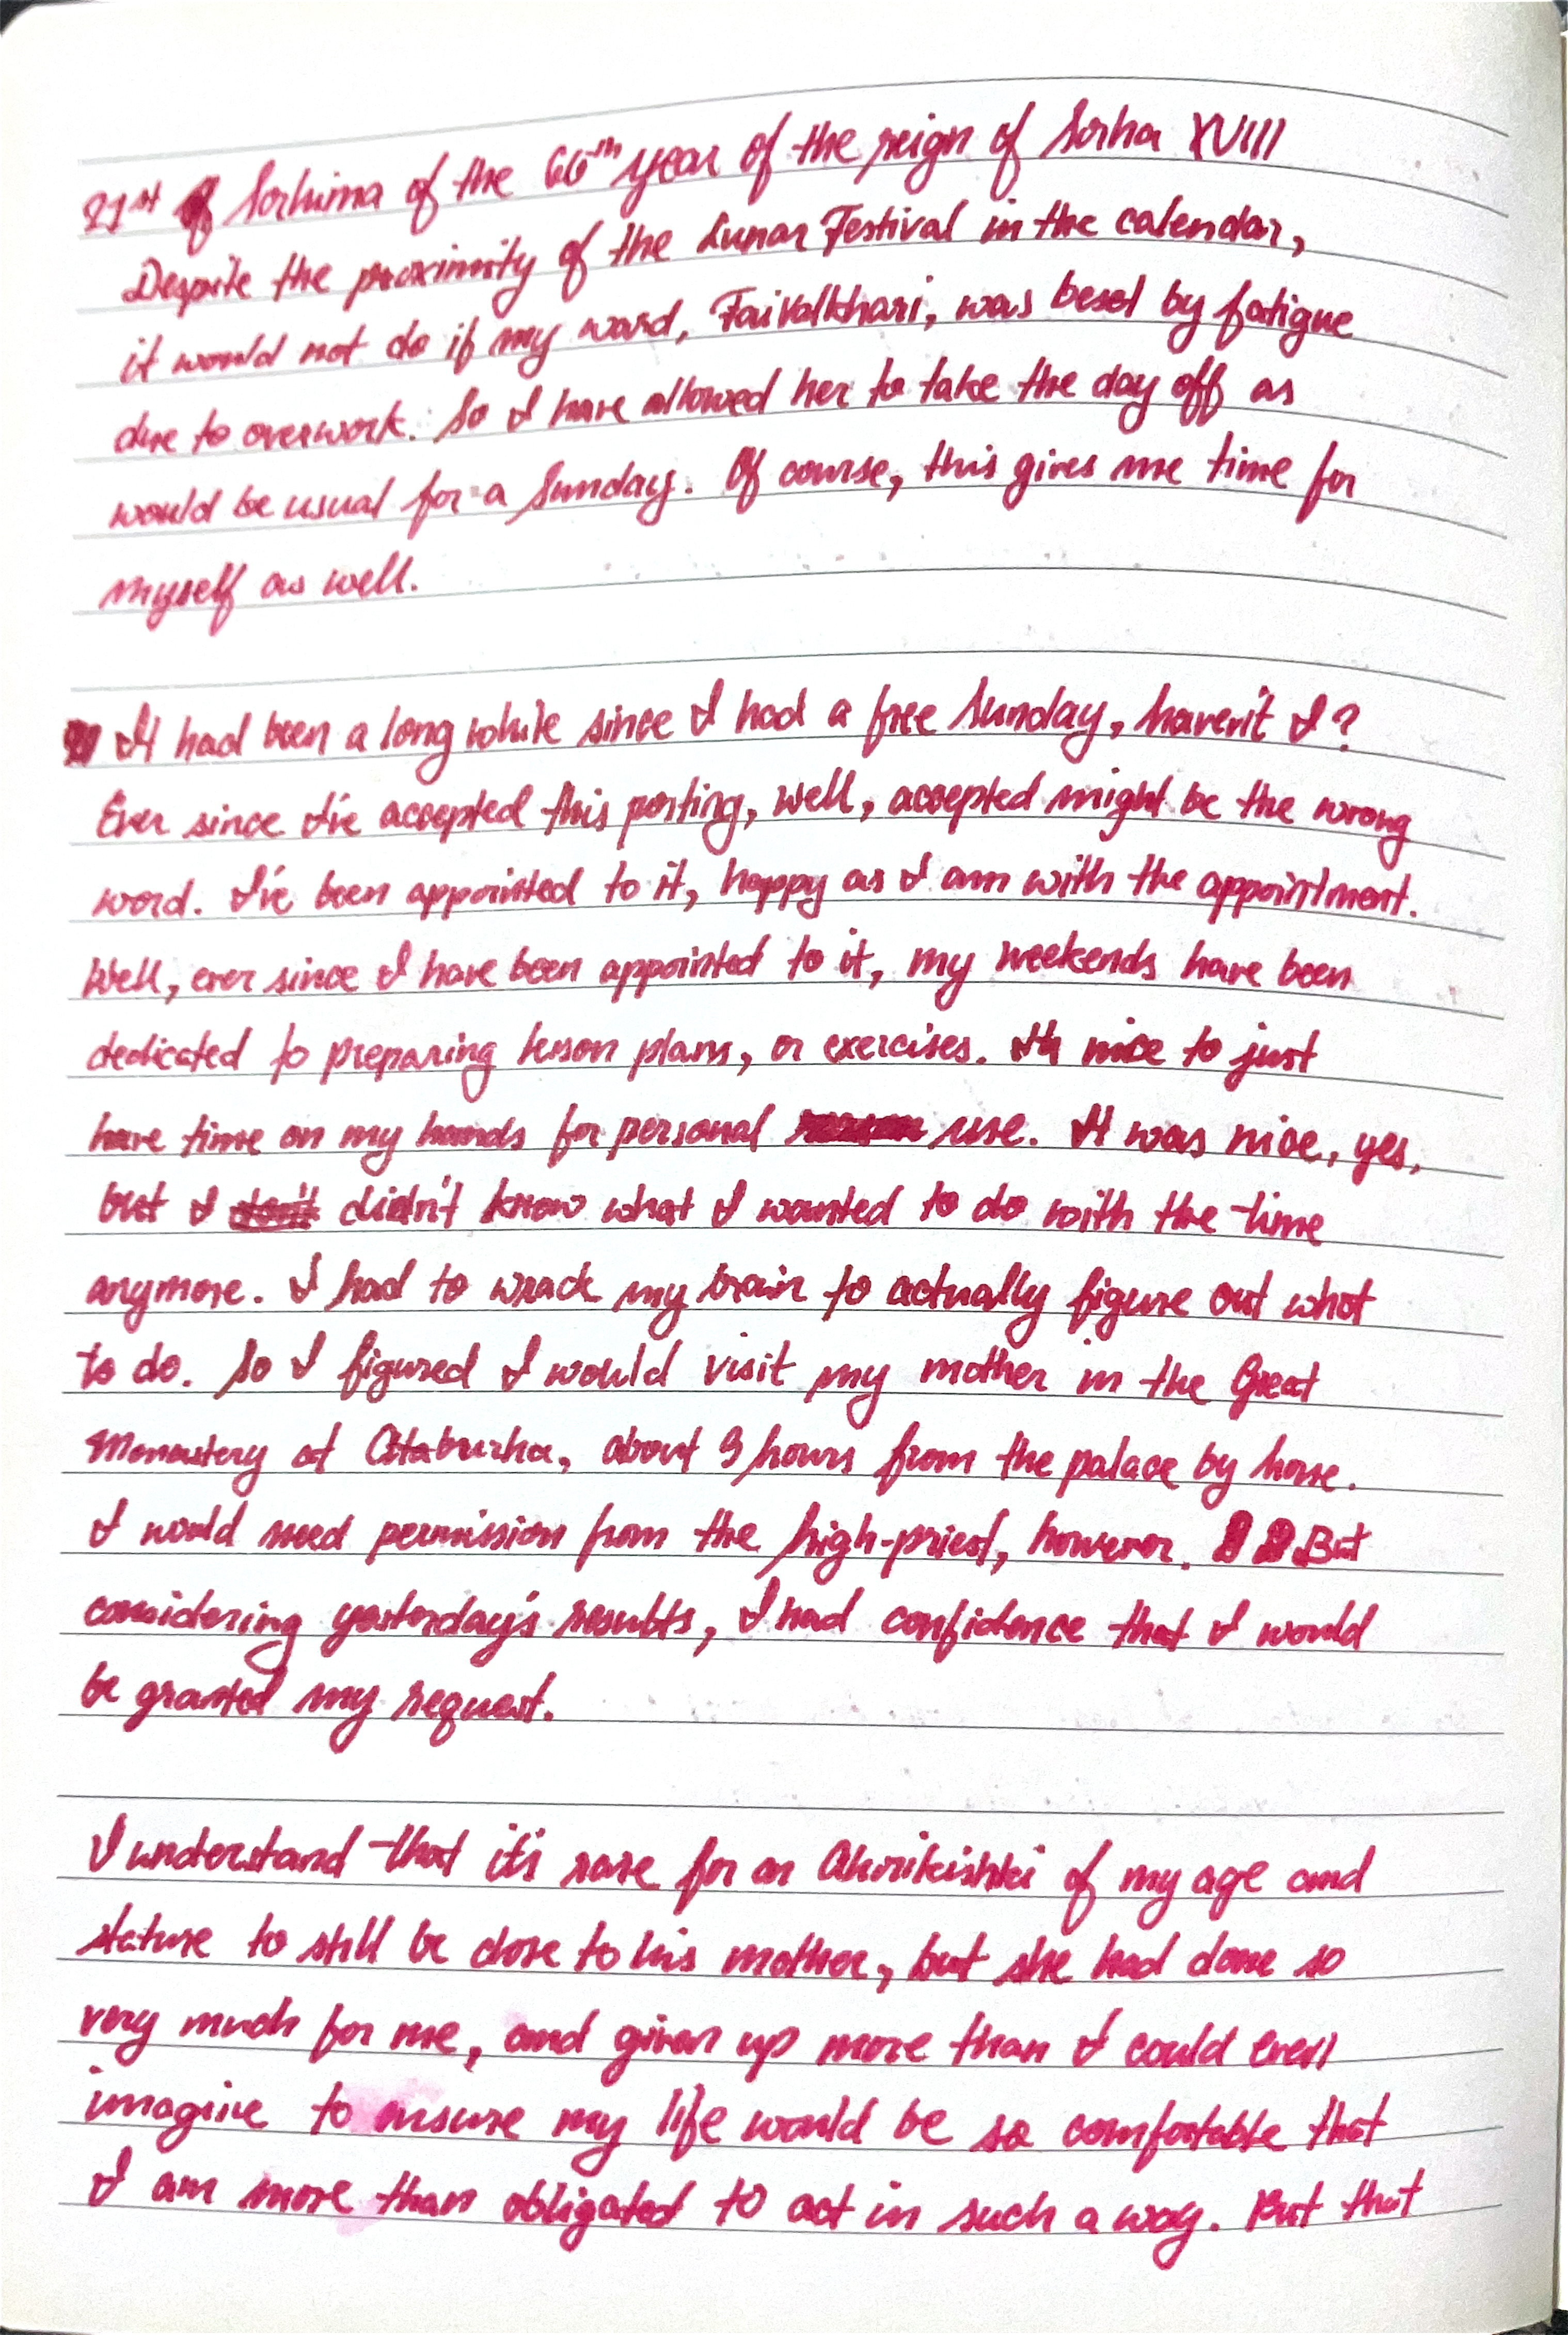 21st of Sorhima of the 66th year of the reign of Sorha XVIII
Despite the proximity of the Lunar Festival in the calendar,
it would not do if my ward, Faivalkhari, was beset by fatigue
due to overwork. So I have allowed her to take the day off as
would be usual for a Sunday. Of course, this gives me time for
myself as well.
It had been a long while since I had a free Sunday, haven't I?
Ever since I've accepted this posting, well, accepted might be the wrong
word. I've been appointed to it, happy as I am with the appointment.
Well, ever since I have been appointed to it, my weekends have been
dedicated to preparing lesson plans, or exercises. It nice to just
have time on my hands for personal use. It was nice, yes,
but I don't didn't know what I wanted to do with the time
anymore. I had to wrack my brain to actually figure out what
to do. So I figured I would visit my mother in the Great
Monastery at Citaburha, about 3 hours from the palace by horse.
I would need permission from the high-priest, however. But
considering yesterday's results, I had confidence that I would
be granted my request.
I understand that it's rare for an of my age and
stature to still be close to his mother, but she had done so
very much for me, and given up more than I could even
imagine to ensure my life would be so comfortable that
I am more than obligated to act in such a way. But that